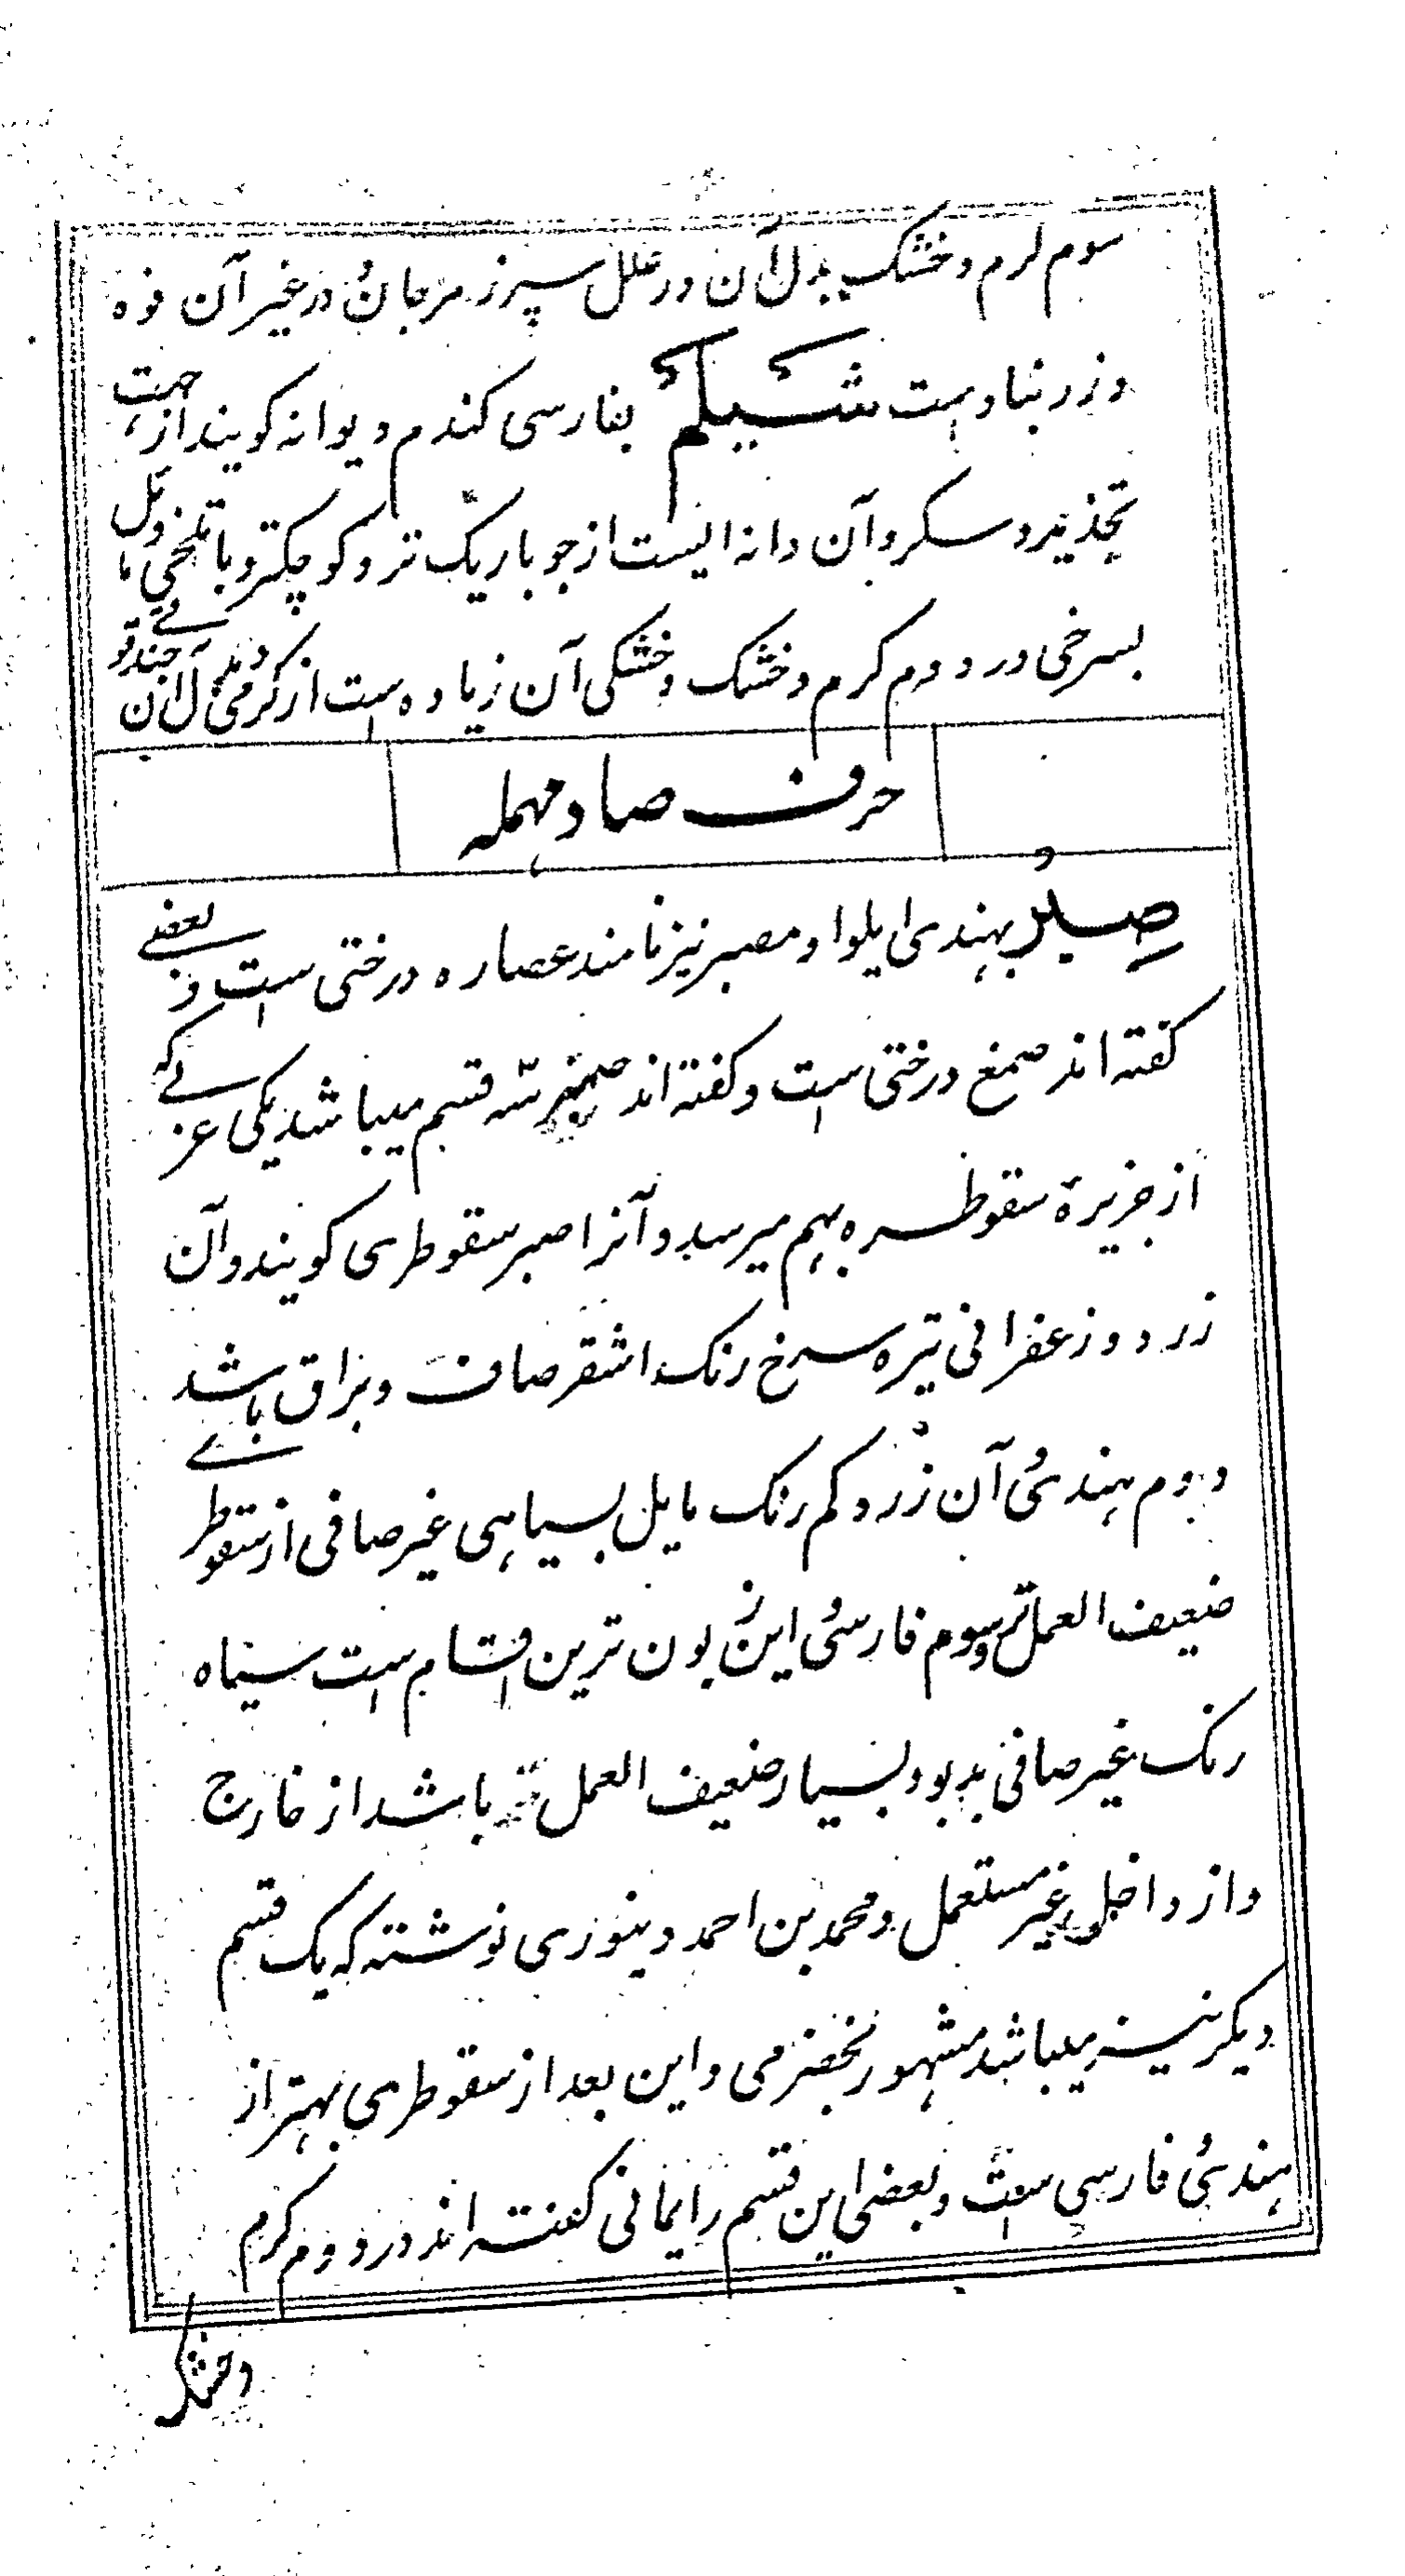 سوم گرم و خشک بدل آن در علل سپرز مرجان و در غیر آن فوه
و زرنباد است شیلم بفارسی کندم دیوانه کویند از جهت
تخذیر و سکر و آن دانه ایست از جو باریک تر و کوچکتر و با تلخی و مایل
بسرخی در دوم کرم و خشک و خشکی آن زیاده است از کرمی و بدل آن
حرف صاد مهمله
صبر بهندی ایلوا و مصبر نیز نامند عصاره درختی است و بعضے
کفته اند صمغ درختی است و کفته اند سه قسم میباشد یکی
از جزیرهٔ سقوطره بهم میرسد و آنرا صبر سقوطری کویند و آن
زرد و زعفرانی تیره سرخ رنک اشقر صاف و براق باشد
دوم هندئ آن زرد کم رنک مایل بسیاهی غیر صافی از سقوطرے
ضعیف العمل تر و سوم فارسئ این زبون ترین اقسام است سیاه
رنک غیر صافی بدبو و بسیار ضعیف العمل باشد از خارج
و از داخل غیر مستعمل و محمد بن احمد دینوری نوشته که یک قسم
دیکر نیز میباشد مشهور بخضرمی و این بعد از سقوطری بهتر از
هندئ فارسی است و بعضی این قسم را یمانی کفته اند در دوم کرم
و خشک